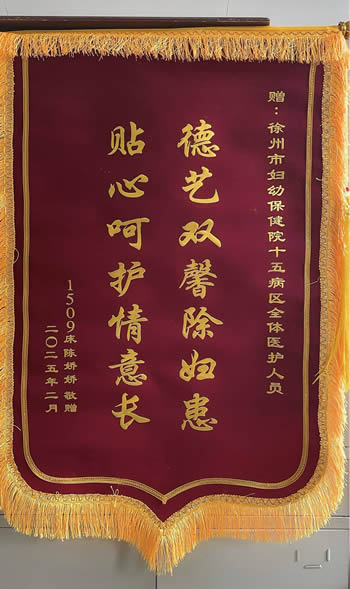 赠：徐州市妇幼保健院十五病区全体医护人员
德艺双馨除妇患
贴心呵护情意长
1509床陈娇娇 敬赠
二〇二五年二月